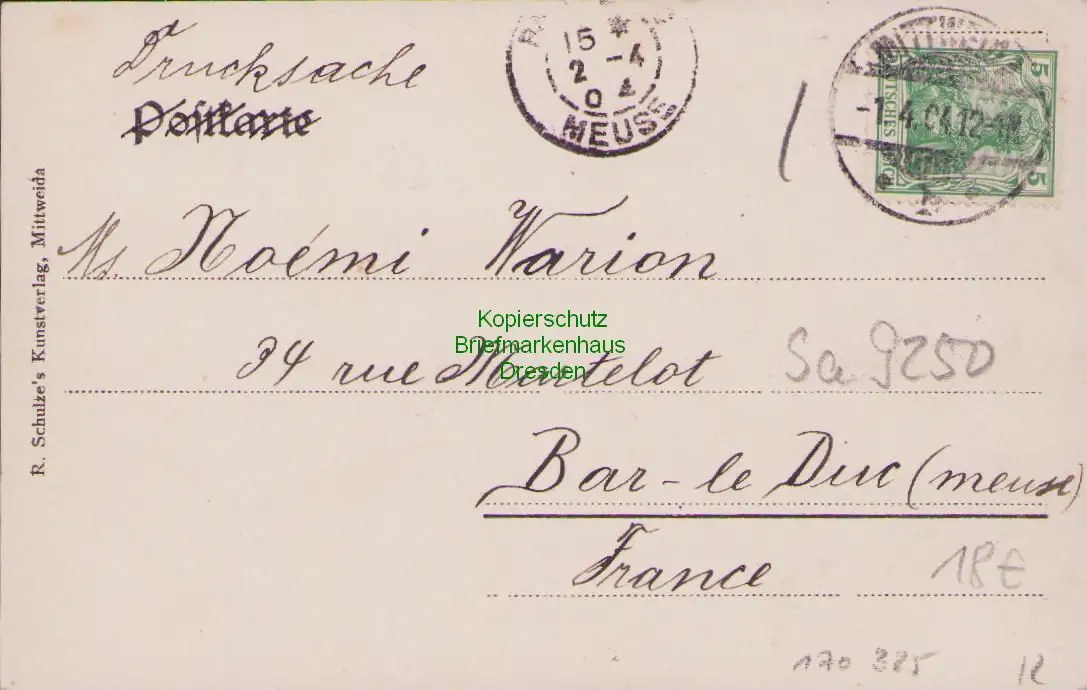 Drucksache
Postkarte
15 *
2 - 4
04
MEUSE
MITTWEIDA
-1.4.04.12-1N.
DEUTSCHES REICH
5
5
R. Schulze's Kunstverlag, Mittweida
Ms. Noémi Warion
Kopierschutz
Briefmarkenhaus
Dresden
34 rue Martelot
Sa 9250
Bar-le Duc (meuse)
France
18E
170 385
R